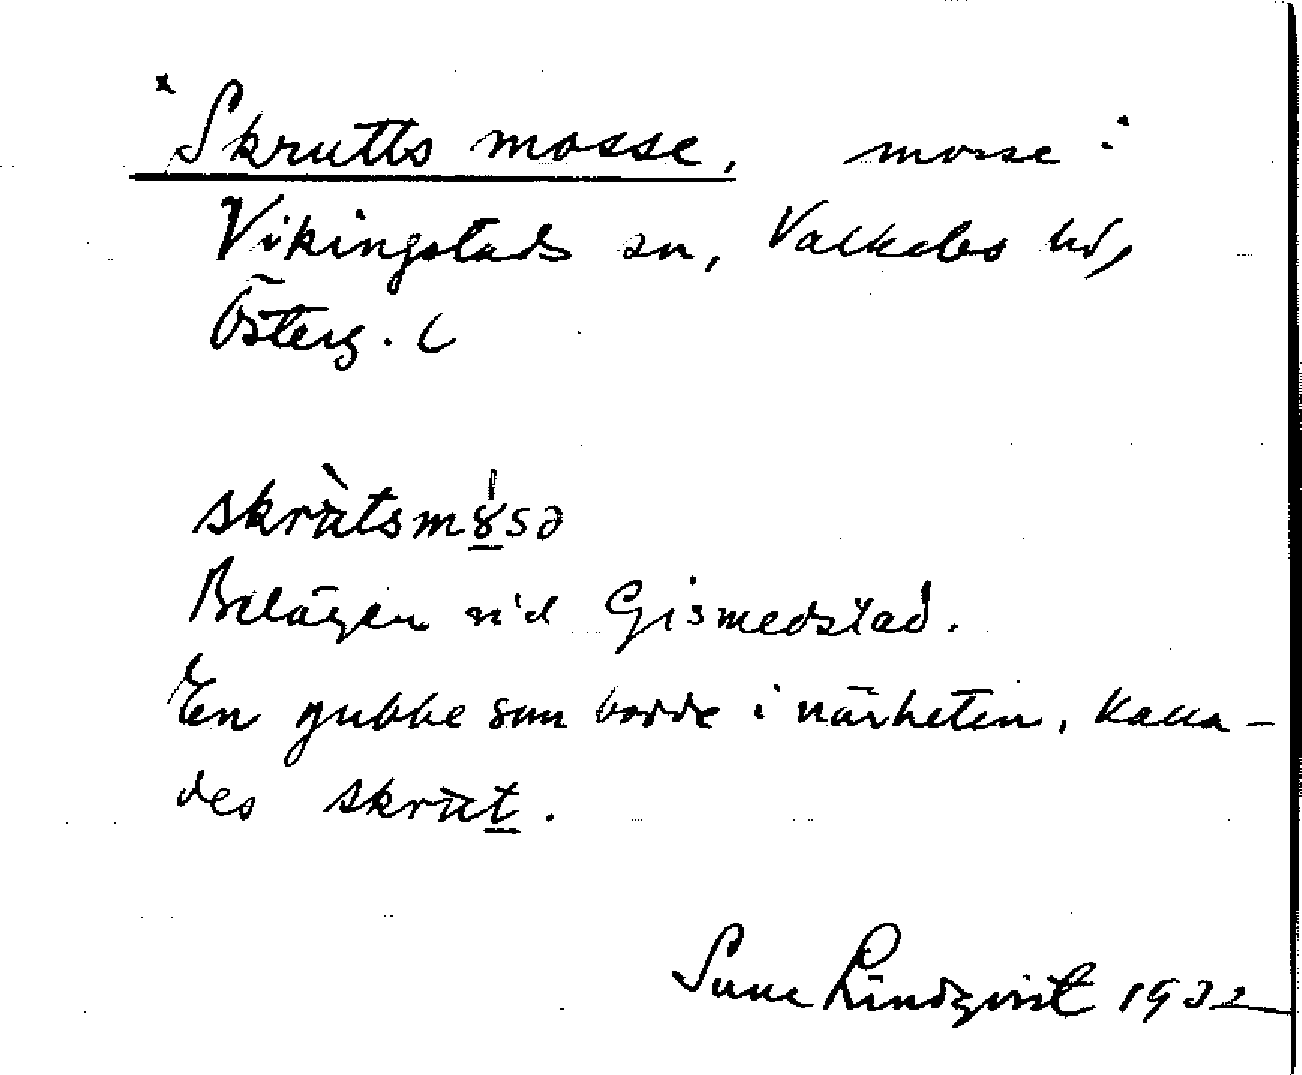 x Skrutts mosse, mosse i
Vikingstads sn, Valkebo hd,
Österg. l
skrùtsmɤ́sə
Belägen vid Gismedstad.
En gubbe som bodde i närheten, kalla-
des skrùt.
Sune Lindqvist 1932